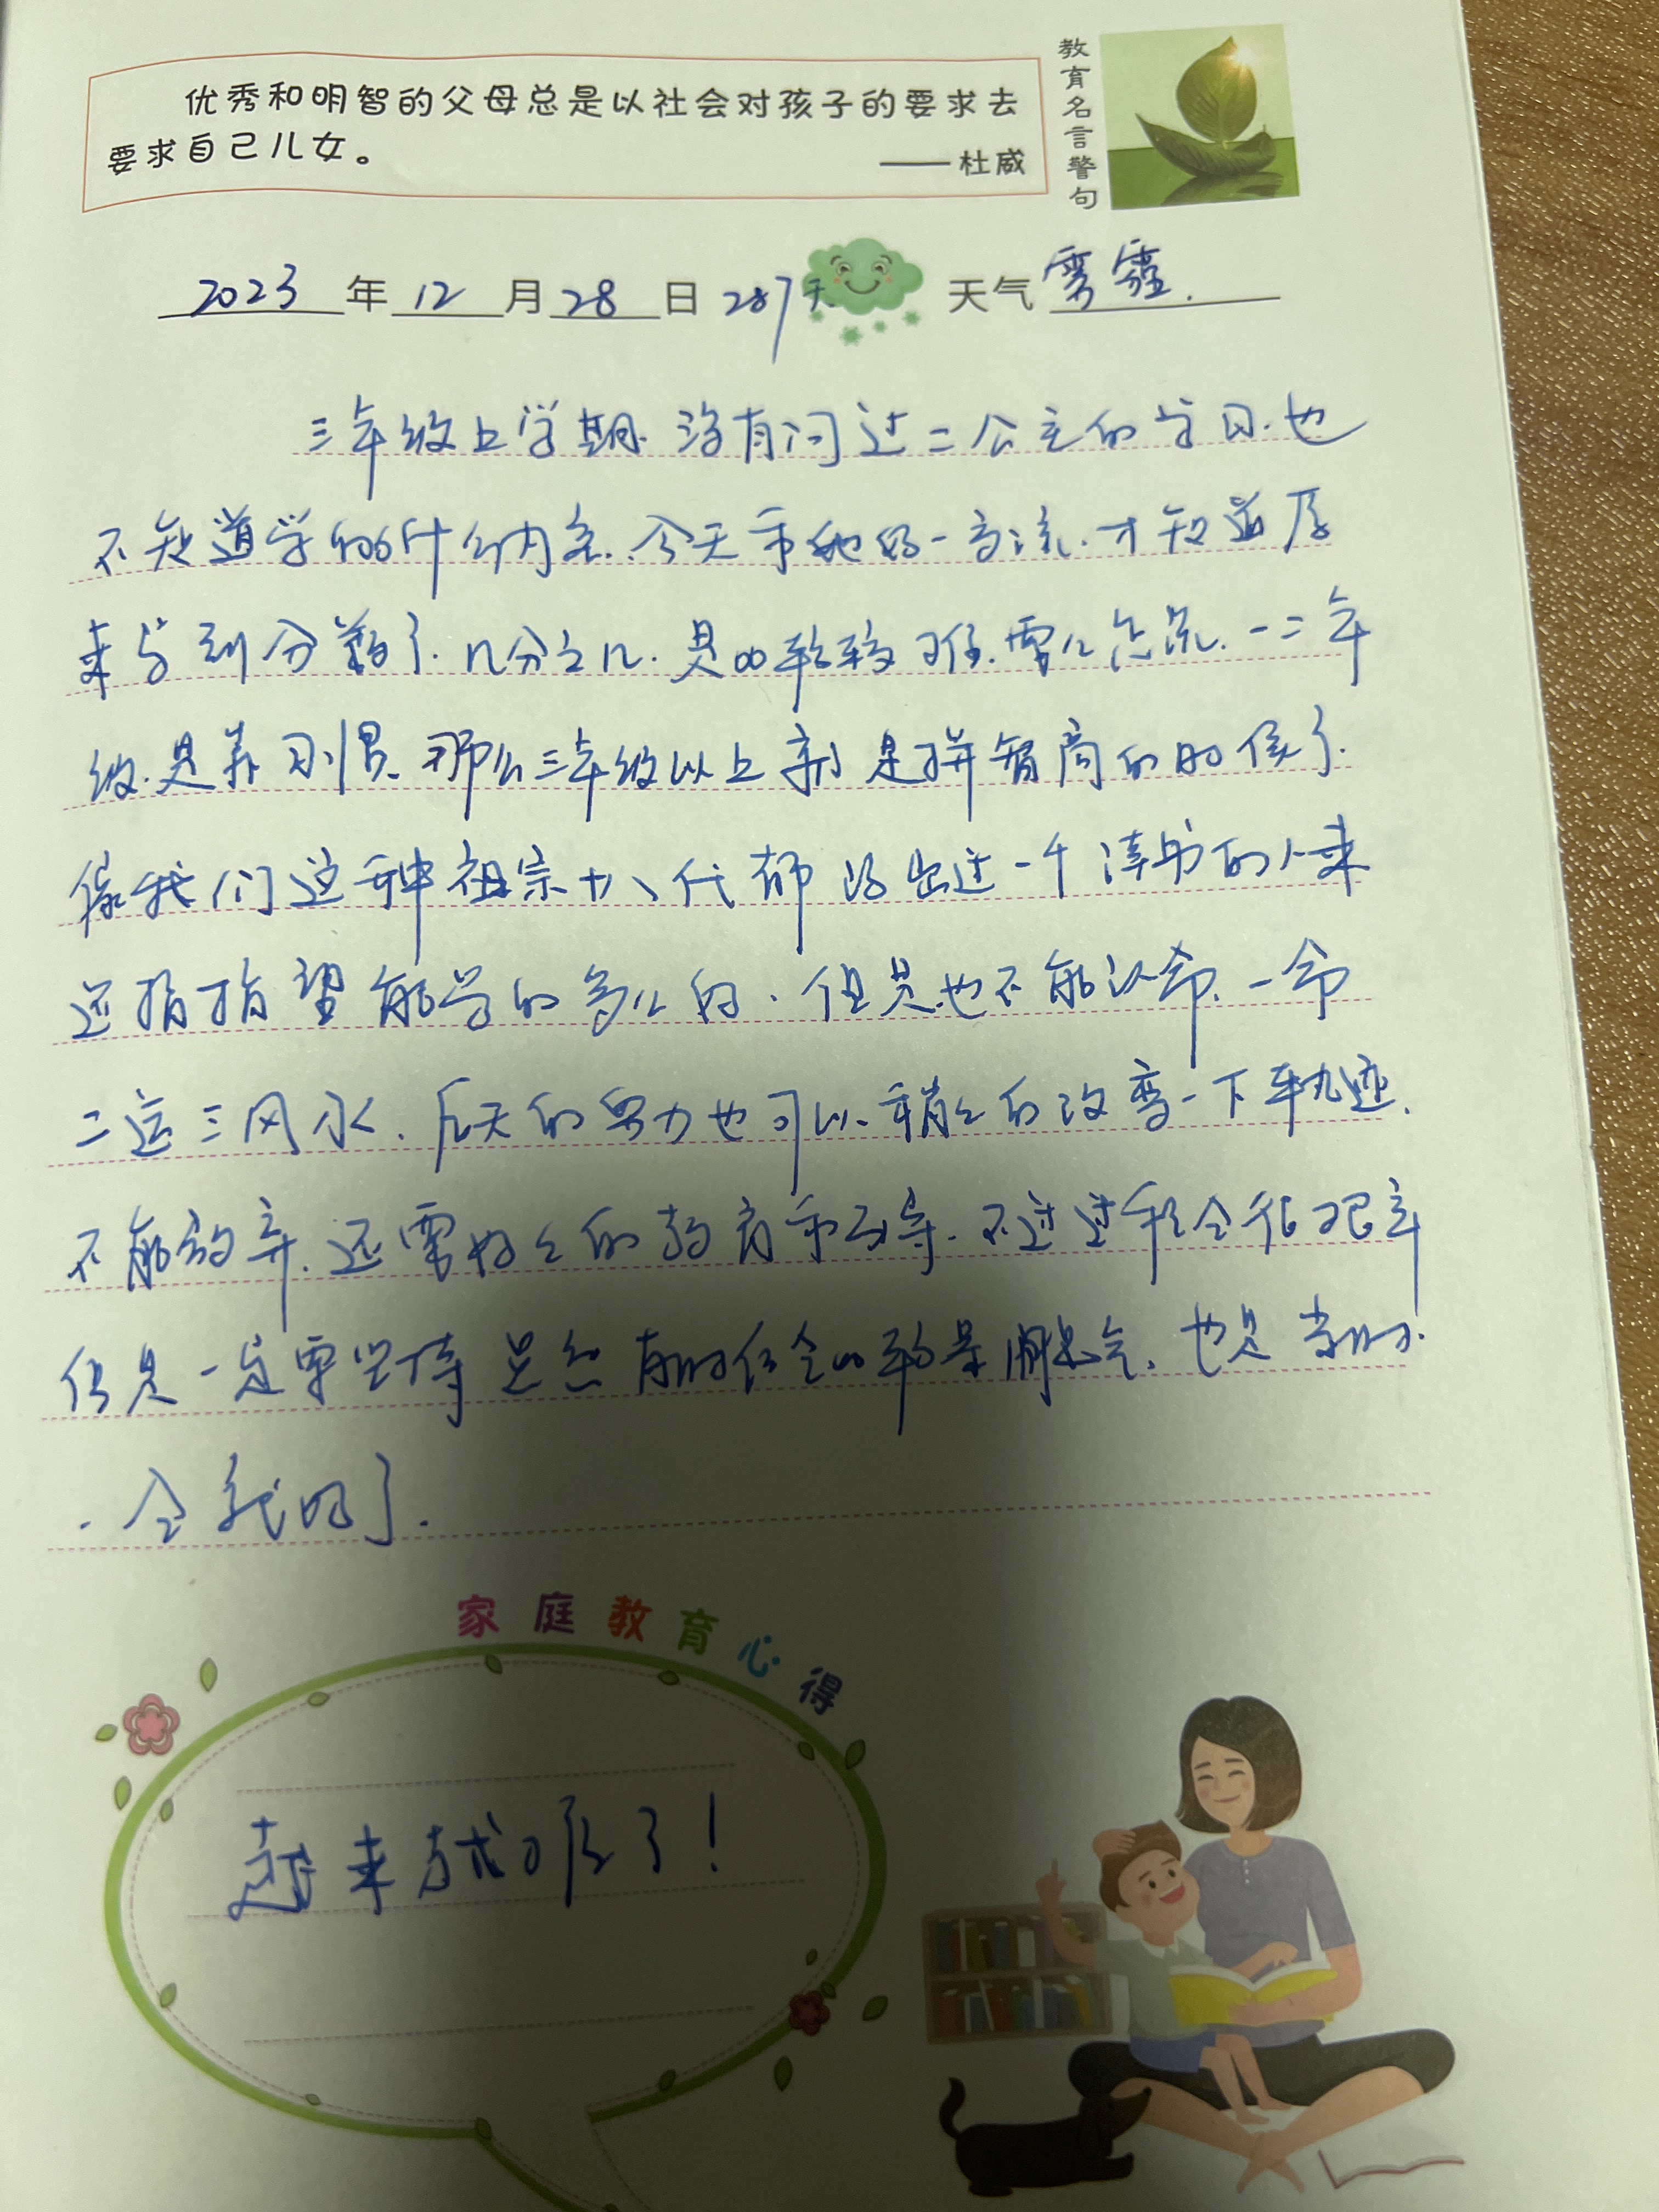 优秀和明智的父母总是以社会对孩子的要求去
要求自己儿女。
——杜威
教育名言警句
2023年12月28日 287天 天气 雾霾.
三年级上学期.没有问过二公主的学习.也
不知道学的什么内容.今天和她妈一交流.才知道原
来学到分数了.几分之几.是比较难.常人怎说.一二年
级.是养习惯.那么三年级以上就是拼智商的时候了.
像我们这种祖宗十八代都没出过一个读书的人来
还指指望能学的多么的.但是也不能认命.一命
二运三风水.后天的努力也可以稍么的改变一下轨迹.
不能放弃.还需好么的教育和引导.不过过程会很艰辛
但是一定要坚持 虽然有时候会
.会 的了.
家庭教育心得
越来越 了!